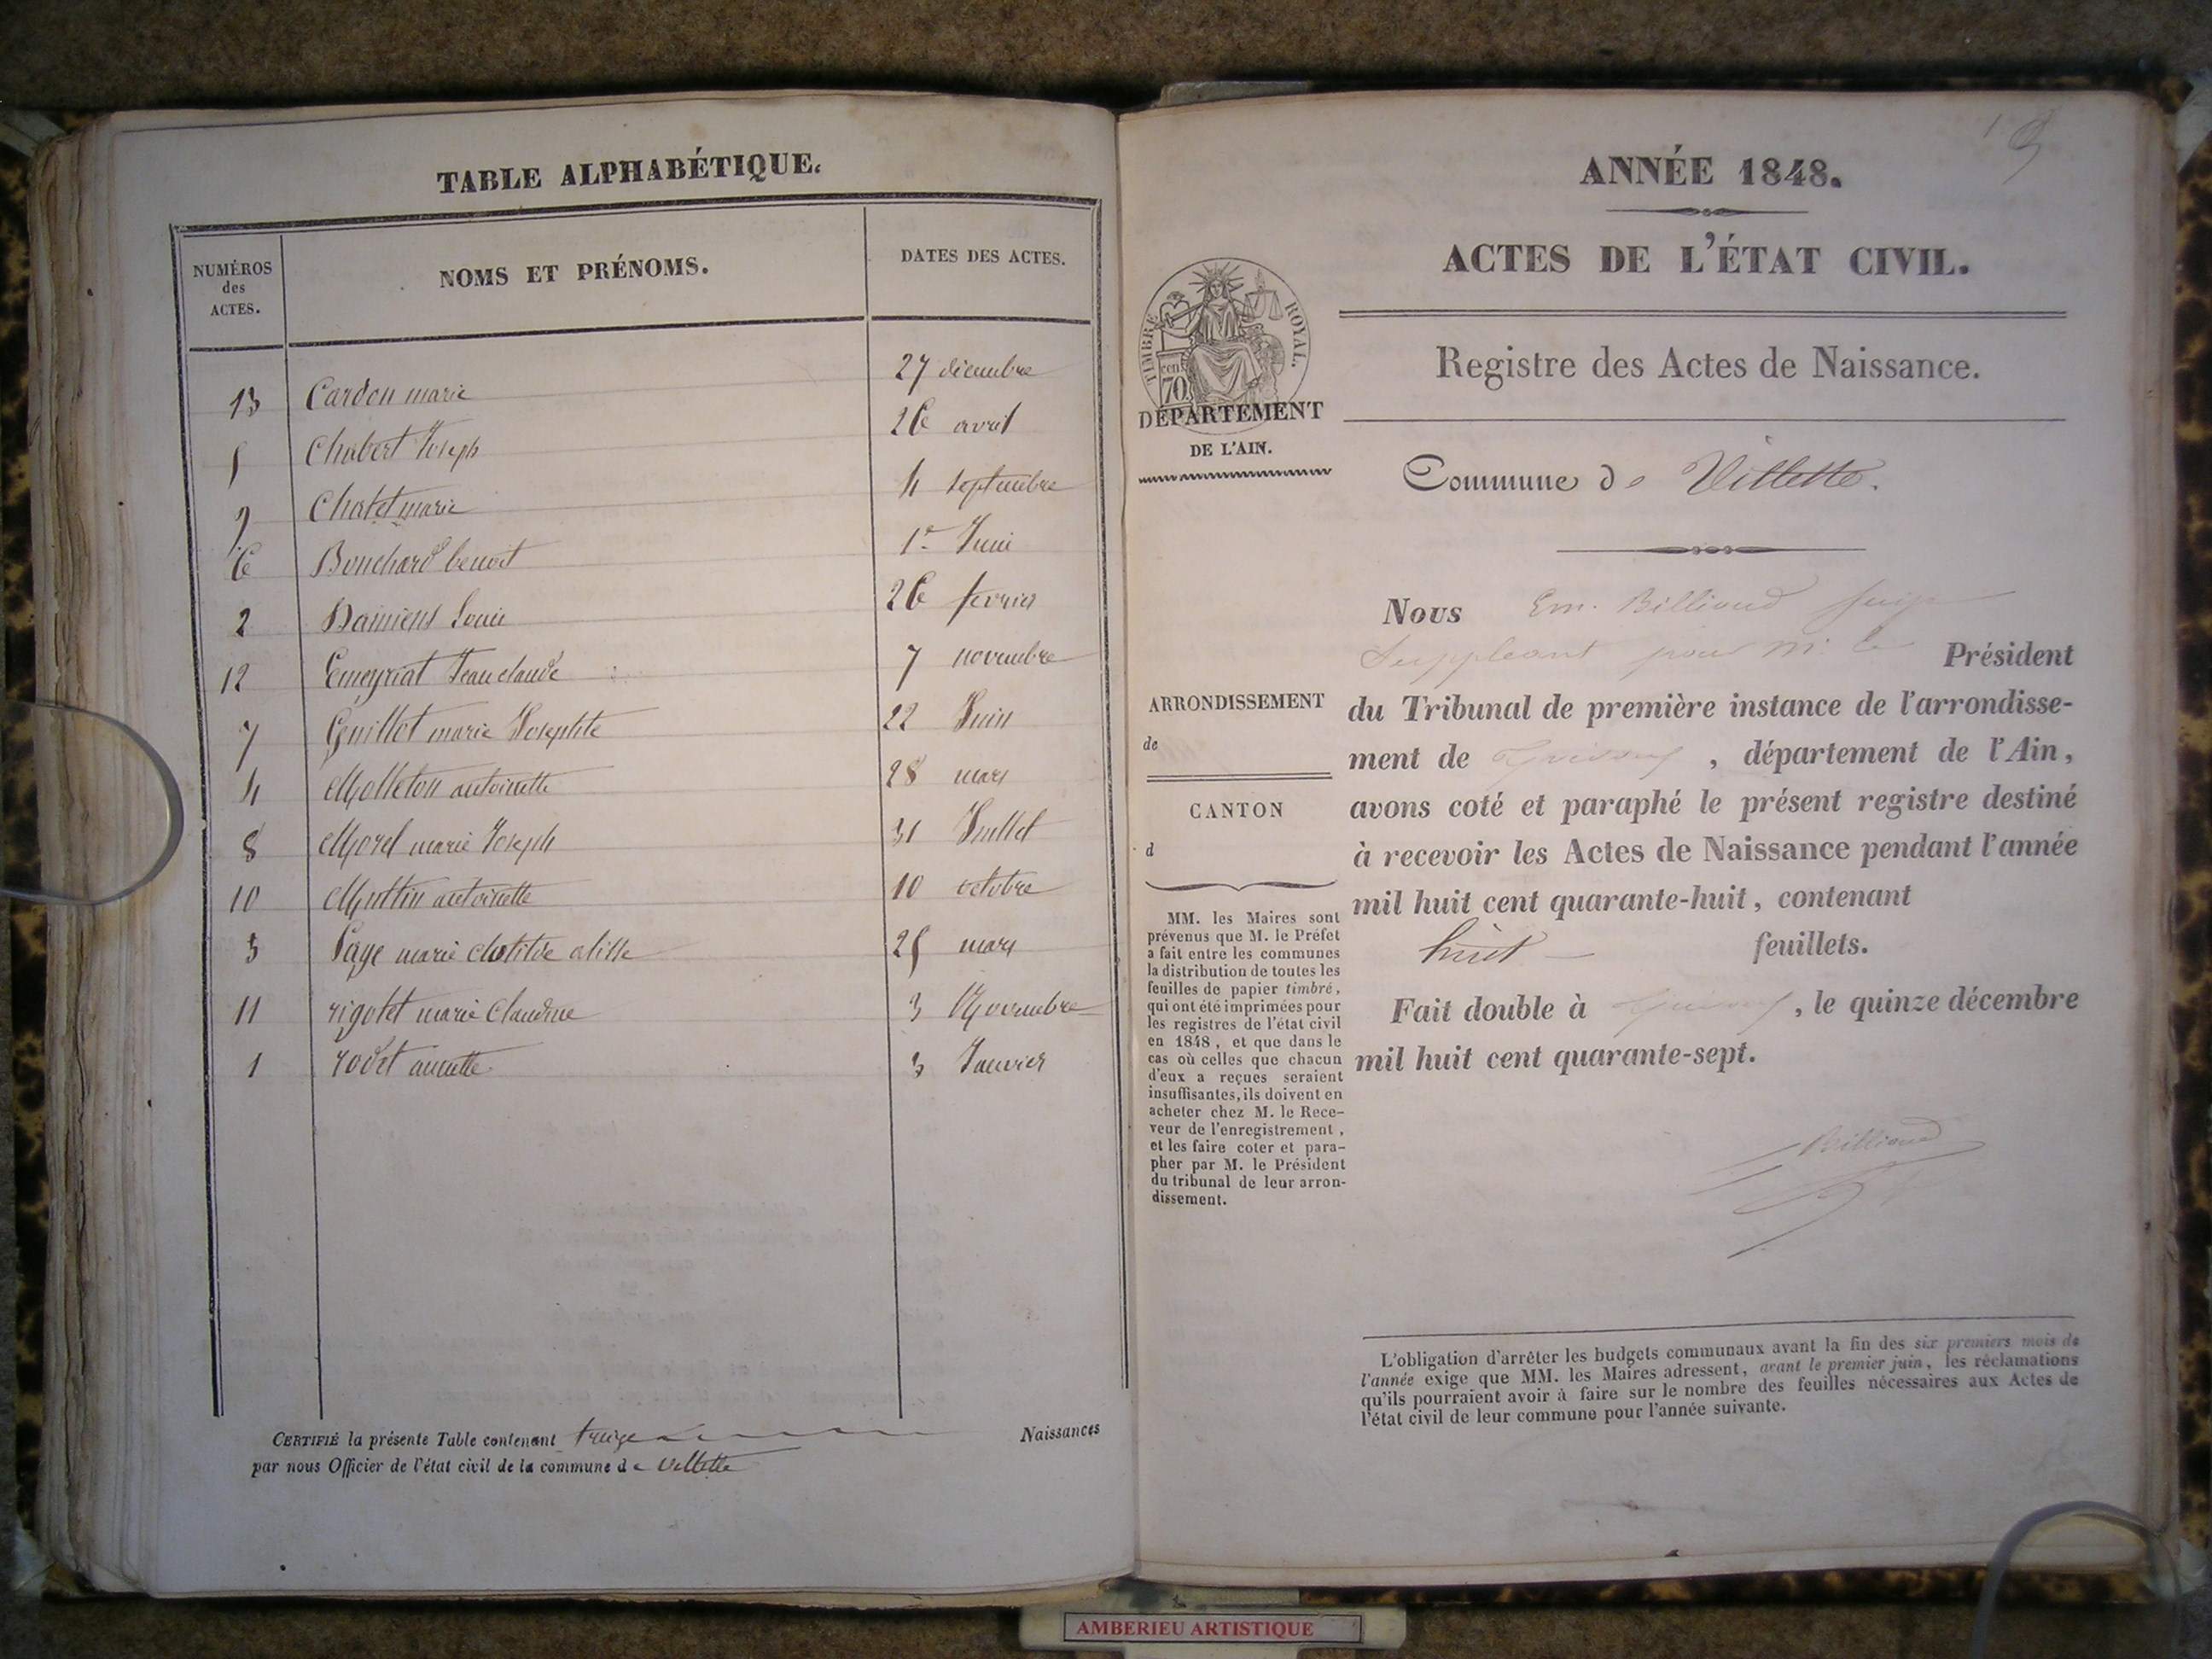 TABLE ALPHABÉTIQUE.
NUMÉROS
des
ACTES.
NOMS ET PRÉNOMS.
DATES DES ACTES.
13 Cardon marie 27 décembre
5 Chabert Joseph 26 avril
9 Chatet marie 4 septembre
6 Bouchard benoit 1er Juin
2 Damiens Louis 26 fevrier
12 Emeyriat Jean claude 7 novembre
7 Guillot marie Josephte 22 Juin
4 Molleton antoinette 28 mars
8 Morel marie Joseph 31 Juillet
10 Muttin antoinette 10 octobre
3 Page marie clotilde 25 mars
11 rigolet marie Claudine 3 Novembre
1 rodet annette 3 Janvier
CERTIFIÉ la présente Table contenant treize Naissances
par nous Officier de l'état civil de la commune de Villette
ANNÉE 1848.
ACTES DE L'ÉTAT CIVIL.
TIMBRE ROYAL.
cen
70
DÉPARTEMENT
DE L'AIN.
Registre des Actes de Naissance.
Commune de Villette.
ARRONDISSEMENT
de
CANTON
d
MM. les Maires sont
prévenus que M. le Préfet
a fait entre les communes
la distribution de toutes les
feuilles de papier timbré,
qui ont été imprimées pour
les registres de l'état civil
en 1848, et que dans le
cas où celles que chacun
d'eux a reçues seraient
insuffisantes, ils doivent en
acheter chez M. le Rece-
veur de l'enregistrement,
et les faire coter et para-
pher par M. le Président
du tribunal de leur arron-
dissement.
Nous Em. Billioud Juge
Suppleant pour Mr. le Président
du Tribunal de première instance de l'arrondisse-
ment de , département de l'Ain,
avons coté et paraphé le présent registre destiné
à recevoir les Actes de Naissance pendant l'année
mil huit cent quarante-huit, contenant
huit feuillets.
Fait double à , le quinze décembre
mil huit cent quarante-sept.
Billioud
L'obligation d'arrêter les budgets communaux avant la fin des six premiers mois de
l'année exige que MM. les Maires adressent, avant le premier juin, les réclamations
qu'ils pourraient avoir à faire sur le nombre des feuilles nécessaires aux Actes de
l'état civil de leur commune pour l'année suivante.
AMBERIEU ARTISTIQUE